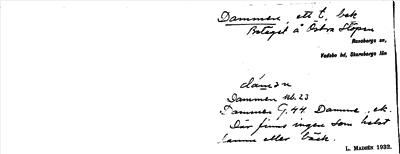 Dammen, ett t, bek
Beläget å Östra Stöpen
Ransbergs sn,
Vadsbo hd, Skaraborgs län
dámən
Dammen Mb. 23
Dammen G. 44 Damme, ek.
Där finns ingen som helst
damm eller bäck.
L. MADSÉN 1932.